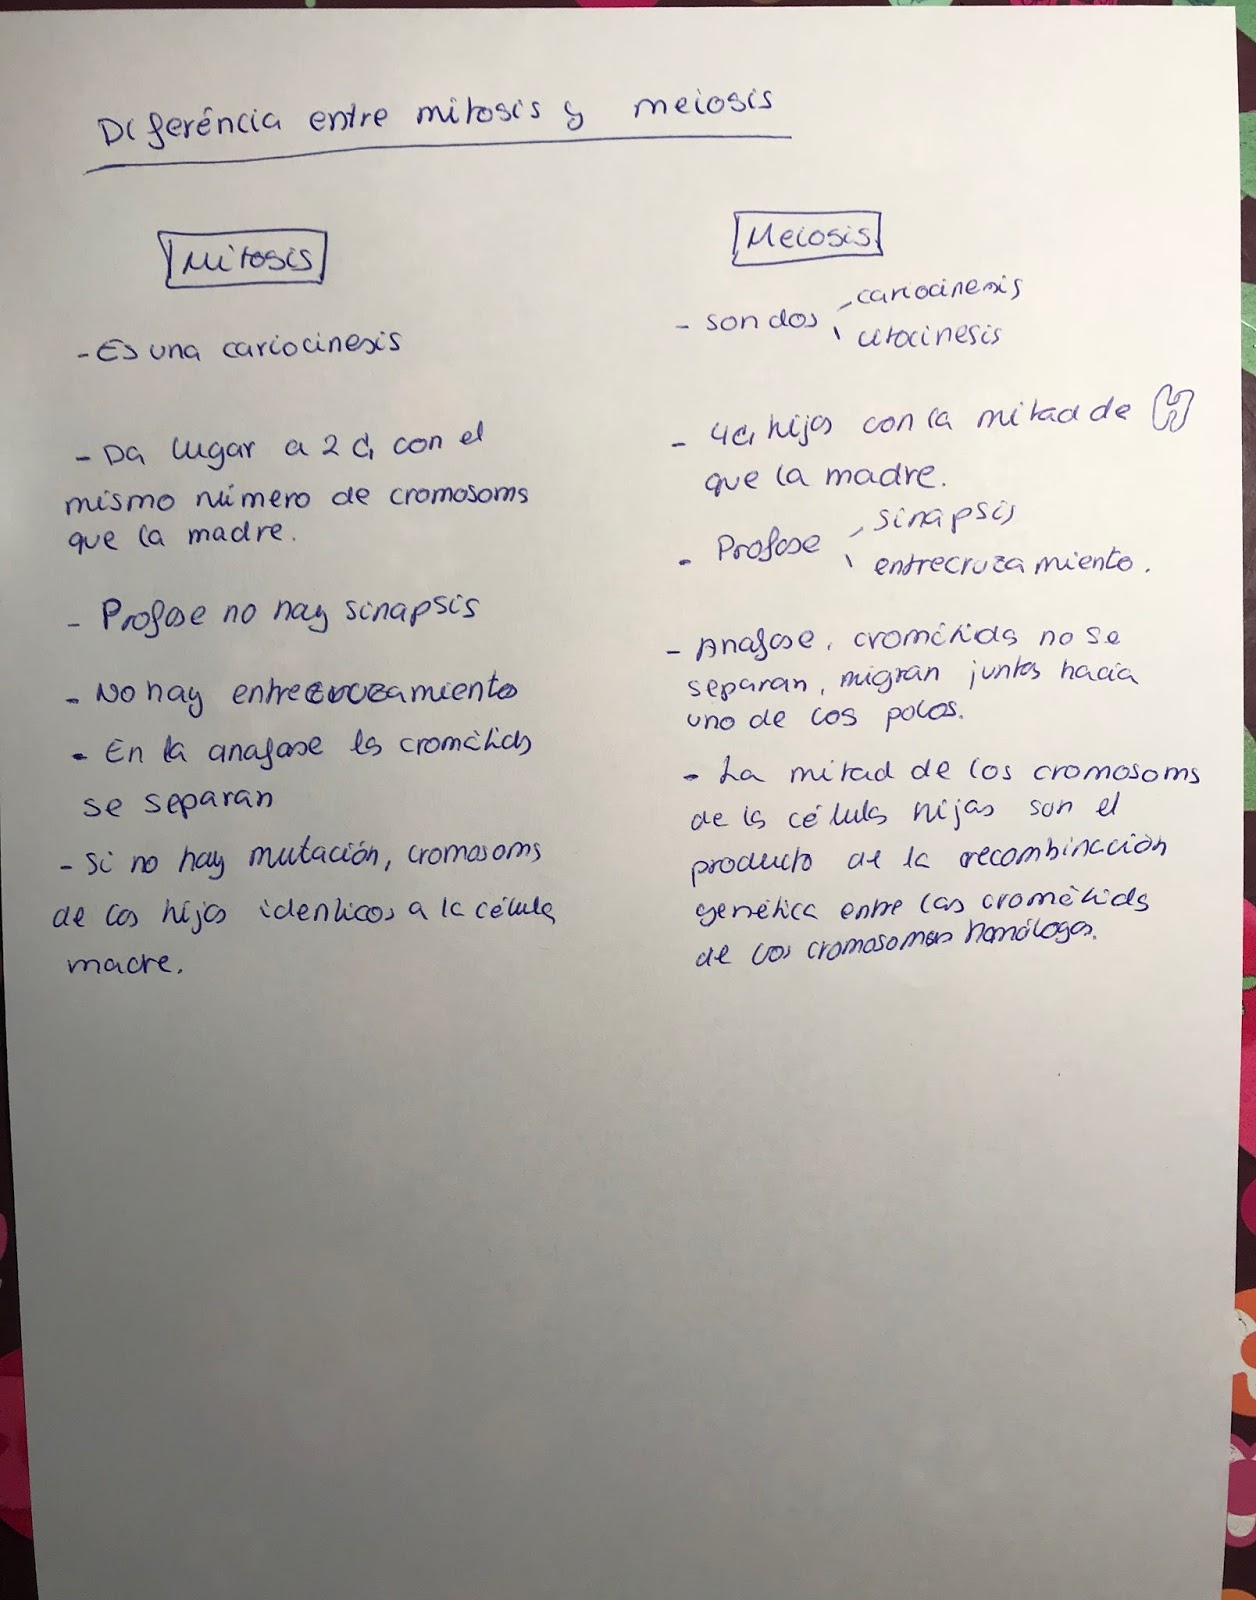 Diferéncia entre mitosis y meiosis
Mitosis
- Es una cariocinesis
- Da lugar a 2 C, con el
mismo número de cromosoms
que la madre.
- Profase no hay sinapsis
- No hay entrecruzamiento
- En la anafase ls cromátids
se separan
- Si no hay mutación, cromosoms
de los hijos identicos a la célula
madre.
Meiosis
- son dos cariocinesis
citocinesis
- 4 C, hijos con la mitad de
que la madre.
- Profase sinapsis
entrecruzamiento.
- Anafase, cromátids no se
separan, migran juntos hacia
uno de los polos.
- La mitad de los cromosoms
de ls céluls hijas son el
producto de la recombinación
genética entre las cromátids
de los cromosomas homólogos.